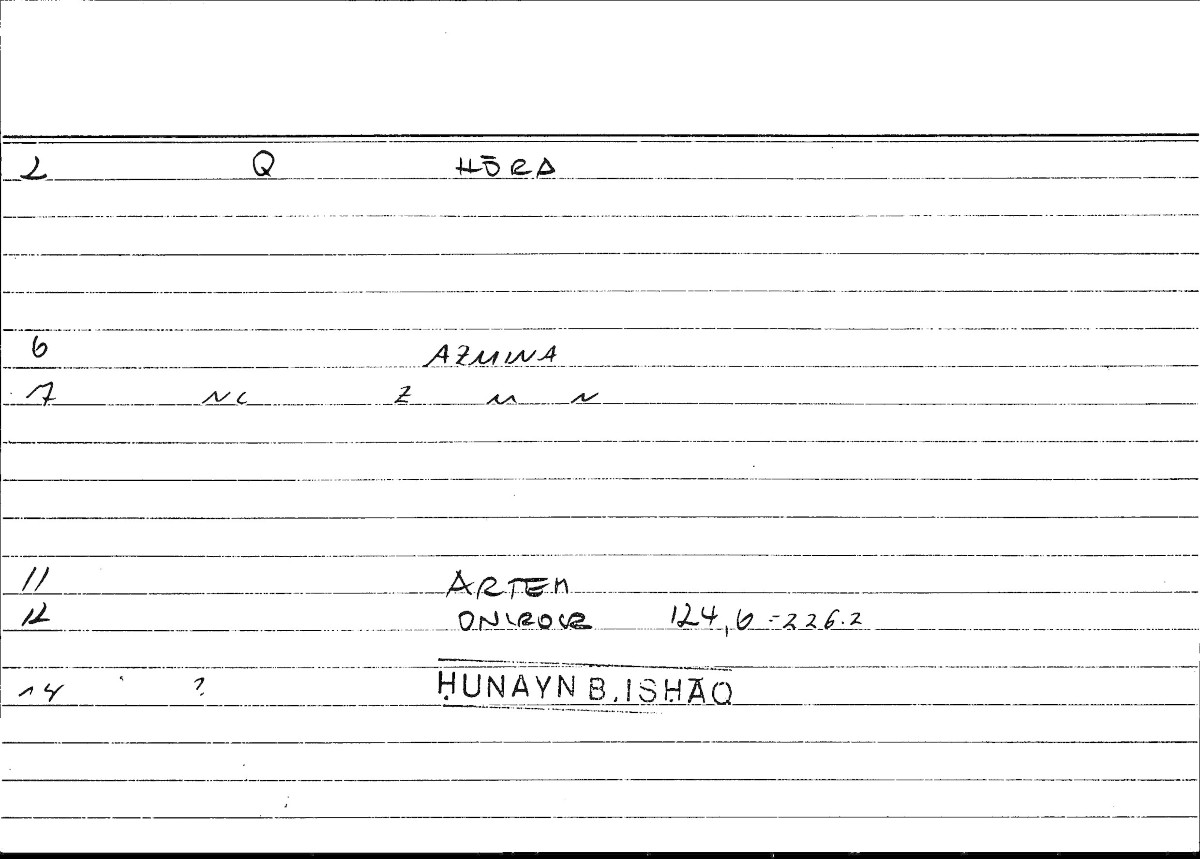 2 Q HŌRA
6 AZMINA
7 NC Z M N
11 ARTEM
12 ONIROCR 124,6-226.2
14 ? ḤUNAYN B. ISḤĀQ